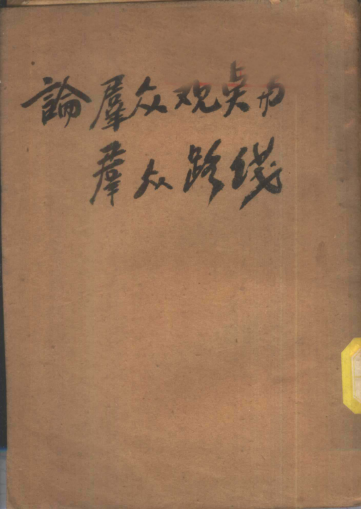 論羣众观点与
羣众路线